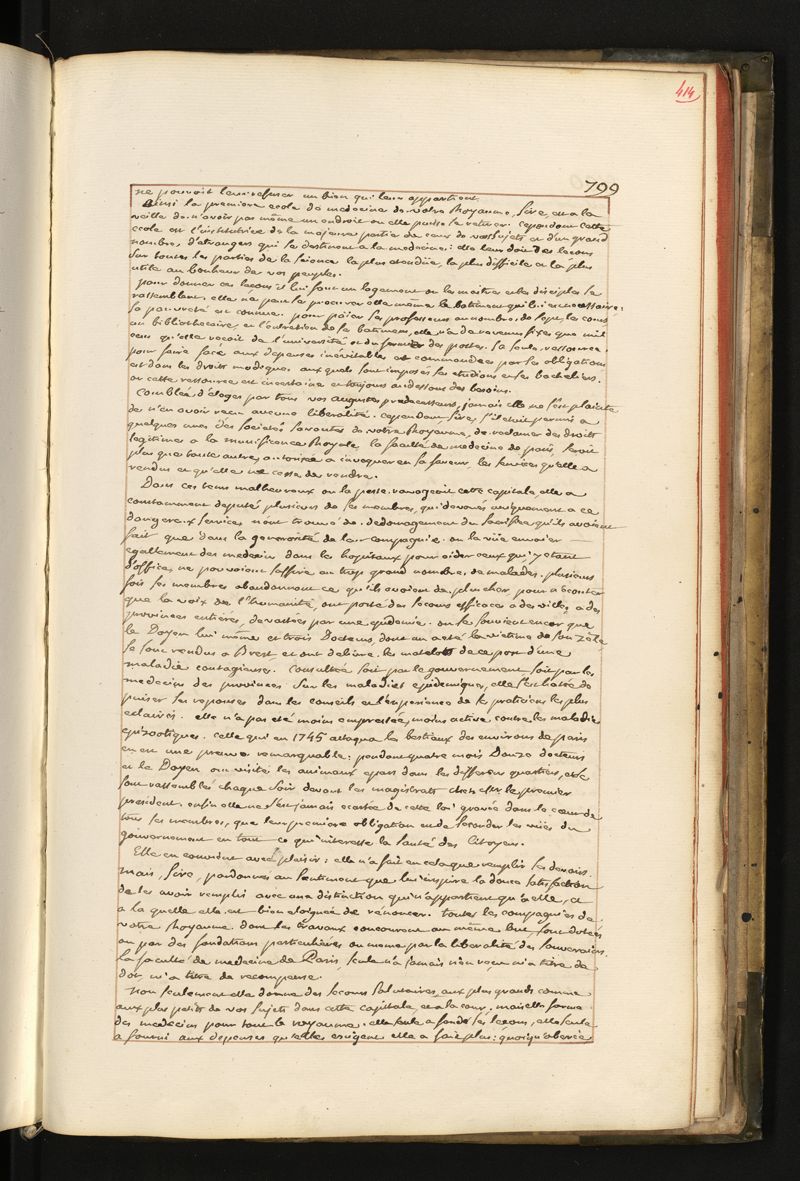 414
799
ne pouvoit leur refuser un bien qui leur appartient.
Ainsi la premiere ecole de medecine de votre Royaume, Sire, est a la
veille de n'avoir pas même un endroit ou elle puisse se retirer. cependant cette
ecole est l'institutrice de la majeure partie de ceux de vos sujets et d'un grand
nombre d'etrangers qui se destinent a la medecine: elle leur doit des leçons
sur toutes les parties de la science la plus etendüe, la plus difficile et la plus
utile au bonheur de vos peuples.
pour donner ces leçons il lui faut un logement ou les maitres et les disciples se
rassemblent. elle n'a peu se procurer elle même le batiment qui lui est necessaire:
sa pauvreté est connue. pour païer ses professeurs au nombre de sept, les cours
un bibliothecaire, et l'entretien de ses batimens, elle n'a de revenus fixes que mil
ecus qu'elle reçoit de l'université et du fermier des postes. sa seule ressource
pour faire face aux depenses inévitables et commandées par ses obligations
est dans les droits modiques aux quels sont imposés ses etudians et ses bacheliers.
or cette ressource est incertaine et toujours audessous des besoins.
Comblée d'eloges par tous vos augustes predecesseurs, jamais elle ne s'est plainte
de n'en avoir reçu aucune liberalité. cependant, Sire, s'il etoit permis a
quelques unes des societés savantes de votre Royaume, de reclamer des droits
legitimes a la munificence Royale, la faculté de medecine de paris, seroit
plus que toute autre, autorisée a invoquer en sa faveur, les services qu'elle a
rendus et qu'elle ne cesse de rendre.
Dans ces tems malheureux ou la peste ravageoit cette capitale, elle a
constamment deputé plusieurs de ses membres, qui devoués uniquement a ce
dangereux services n'ont trouvé de dedomagement du sacrifice qu'ils avoient
fait que dans la generosité de leur compagnie. on la vüe envoier
egallement des medecins dans les hopitaux pour aider ceux qui y etant
d'office, ne pouvoient suffire au trop grand nombre de malades. plusieurs
fois ses membres abandonnant ce qu'ils avoient de plus cher pour n'ecouter
que la voix de l'humanité, ont porté des secours efficaces a des villes, a des
provinces entières, devastées par une epidemie. on se souvient encor que
le Doyen lui même et trois Docteurs, dont un a eté la victime de son zèle
se sont rendus a Brest, et ont delivré les matelots de ce port d'une
maladie contagieuse. Consultée soit par le gouvernement soit par les
medecins des provinces sur les maladies epidemiques, elle s'est hatée de
puiser ses reponses dans les conseils et l'experience de ses praticiens les plus
eclairés. elle n'a pas eté moins empressée, moins active contre les maladies
epizootiques. celle qui en 1745 attaqua les bestiaux des environs de paris
en est une preuve remarquable: pendant quatre mois Douze docteurs
et le Doyen ont visité les animaux epars dans les differens quartiers, et se
sont rassemblés chaque soir devant les magistrats chez Mr. le premier
president. enfin elle ne s'est jamais ecartée de cette loi gravée dans le cœur de
tous ses membres, que leur premiere obligation est de seconder les vües du
gouvernement en tout ce qui interesse la santé des Citoyens.
Elle en convient avec plaisir: elle n'a fait en cela que remplir ses devoirs.
mais, Sire, pardonnés au sentiment que lui inspire la douce satisfaction
de les avoir remplis avec une distinction qui n'appartient qu'a elle, et
a la quelle elle est bien eloignée de renoncer. toutes les compagnies de
votre Royaume dont les travaux concourent au même but sont dotées
ou par des fondations particulières ou meme par la liberalité des souverains.
la faculté de medecine de Paris, seule n'a jamais rien reçu ni a titre de
don, ni a titre de recompense.
Non seulement elle donne des secours salutaires aux plus grands comme
aux plus petits de vos sujets dans cette capitale, et a la cour, mais elle forme
des medecins pour tout le royaume. elle seule a fondé ses leçons, elle seule
a fourni aux depenses qu'elles exigent. elle a fait plus: quoiqu'oberée